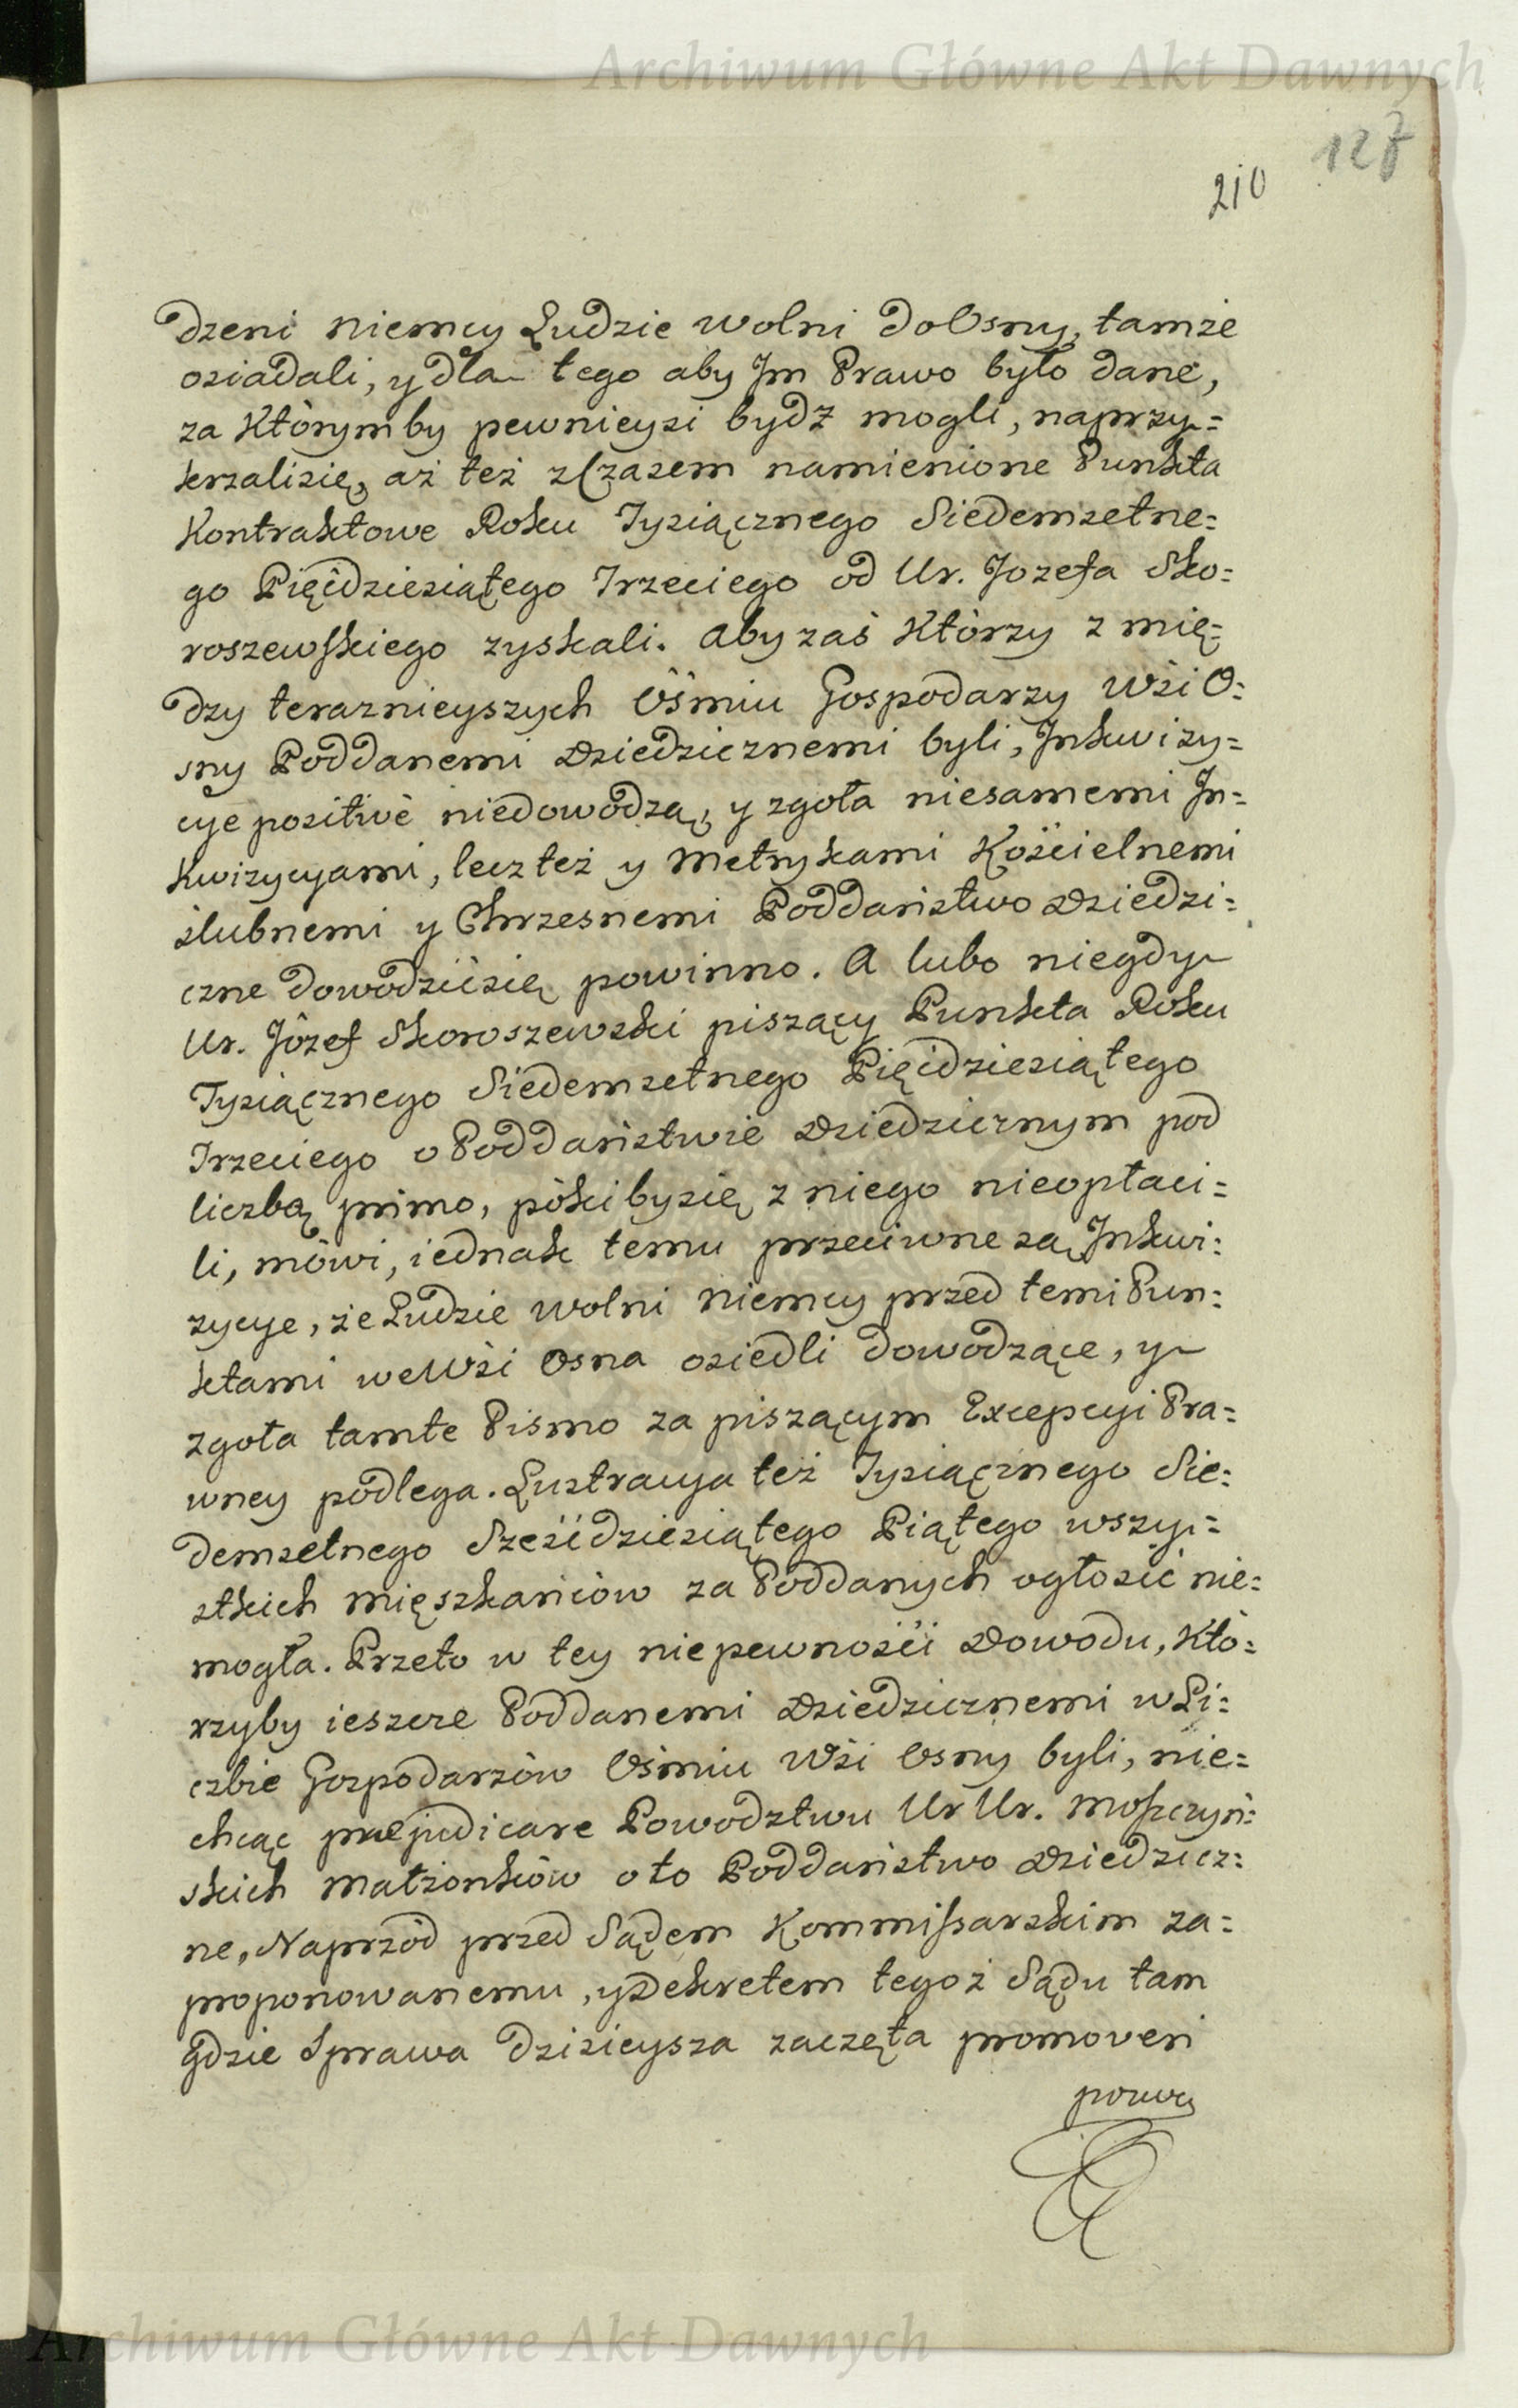 Archiwum Główne Akt Dawnych
127
210
dzeni Niemcy Ludzie wolni do Osny, tamże
osiadali, y dla tego aby Im Prawo było dane,
za Którymby pewnieysi bydź mogli, naprzy=
krzalisię, aż też z Czasem namienione Punkta
Kontraktowe Roku Tysiącznego Siedemsetne=
go Pięćdziesiątego Trzeciego od Ur. Jozefa Sko=
roszewskiego zyskali. Aby zaś Którzy z mię=
dzy teraznieyszych Ośmiu Gospodarzy Wśi O=
sny Poddanemi Dziedzicznemi byli, Inkwizy=
cye positivè niedowodzą, y zgoła niesamemi In=
kwizycyami, lecz też y Metrykami Kościelnemi
slubnemi y Chrzesnemi Poddaństwo Dziedzi=
czne dowodzićsię powinno. A lubo niegdy
Ur. Józef Skoroszewski piszący Punkta Roku
Tysiącznego Siedemsetnego Pięćdziesiątego
Trzeciego o Poddaństwie Dziedzicznym pod
liczbą primo, pókibysię z niego nieopłaci=
li, mówi, iednak temu przeciwne są Inkwi=
zycye, że Ludzie wolni Niemcy przed temi Pun=
ktami we Wśi Osna osiedli dowodzące, y
zgoła tamte Pismo za piszącym Excepcyi Pra=
wney podlega. Lustracya też Tysiącznego Sie=
demsetnego Sześćdziesiątego Piątego wszy=
stkich Mięszkańców za Poddanych ogłosić nie=
mogła. Przeto w tey niepewnośći Dowodu, Któ=
rzyby ieszcze Poddanemi Dziedzicznemi w Li=
czbie Gospodarzów Ośmiu Wśi Osny byli, nie=
chcąc præjudicare Powodztwu Ur Ur. Moszczyń=
skich Małżonków o to Poddaństwo Dziedzicz=
ne, Naprzód przed Sądem Kommissarskim za=
proponowanemu, y Dekretem tegoż Sądu tam
gdzie Sprawa dzisieysza zaczęta promoveri
Archiwum Główne Akt Dawnych